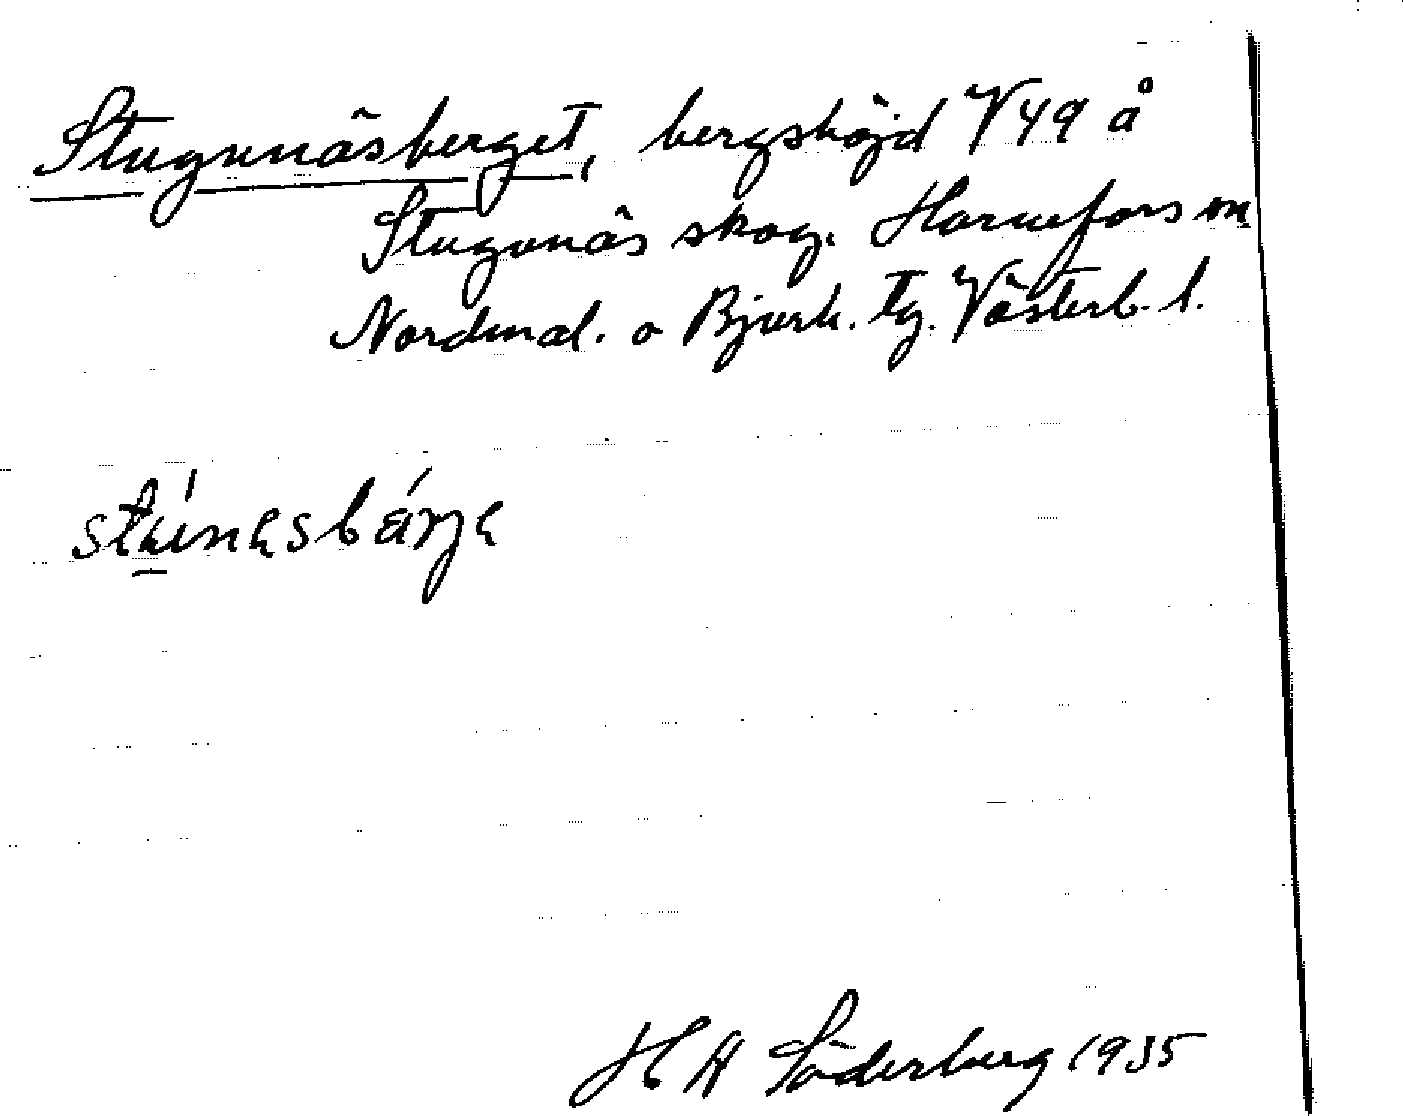 Stugunäsberget, bergshöjd V49 å
Stugunäs skog. Hörnefors sn
Nordmal. o Bjurh. tg. Västerb. l.
H A Söderberg 1935